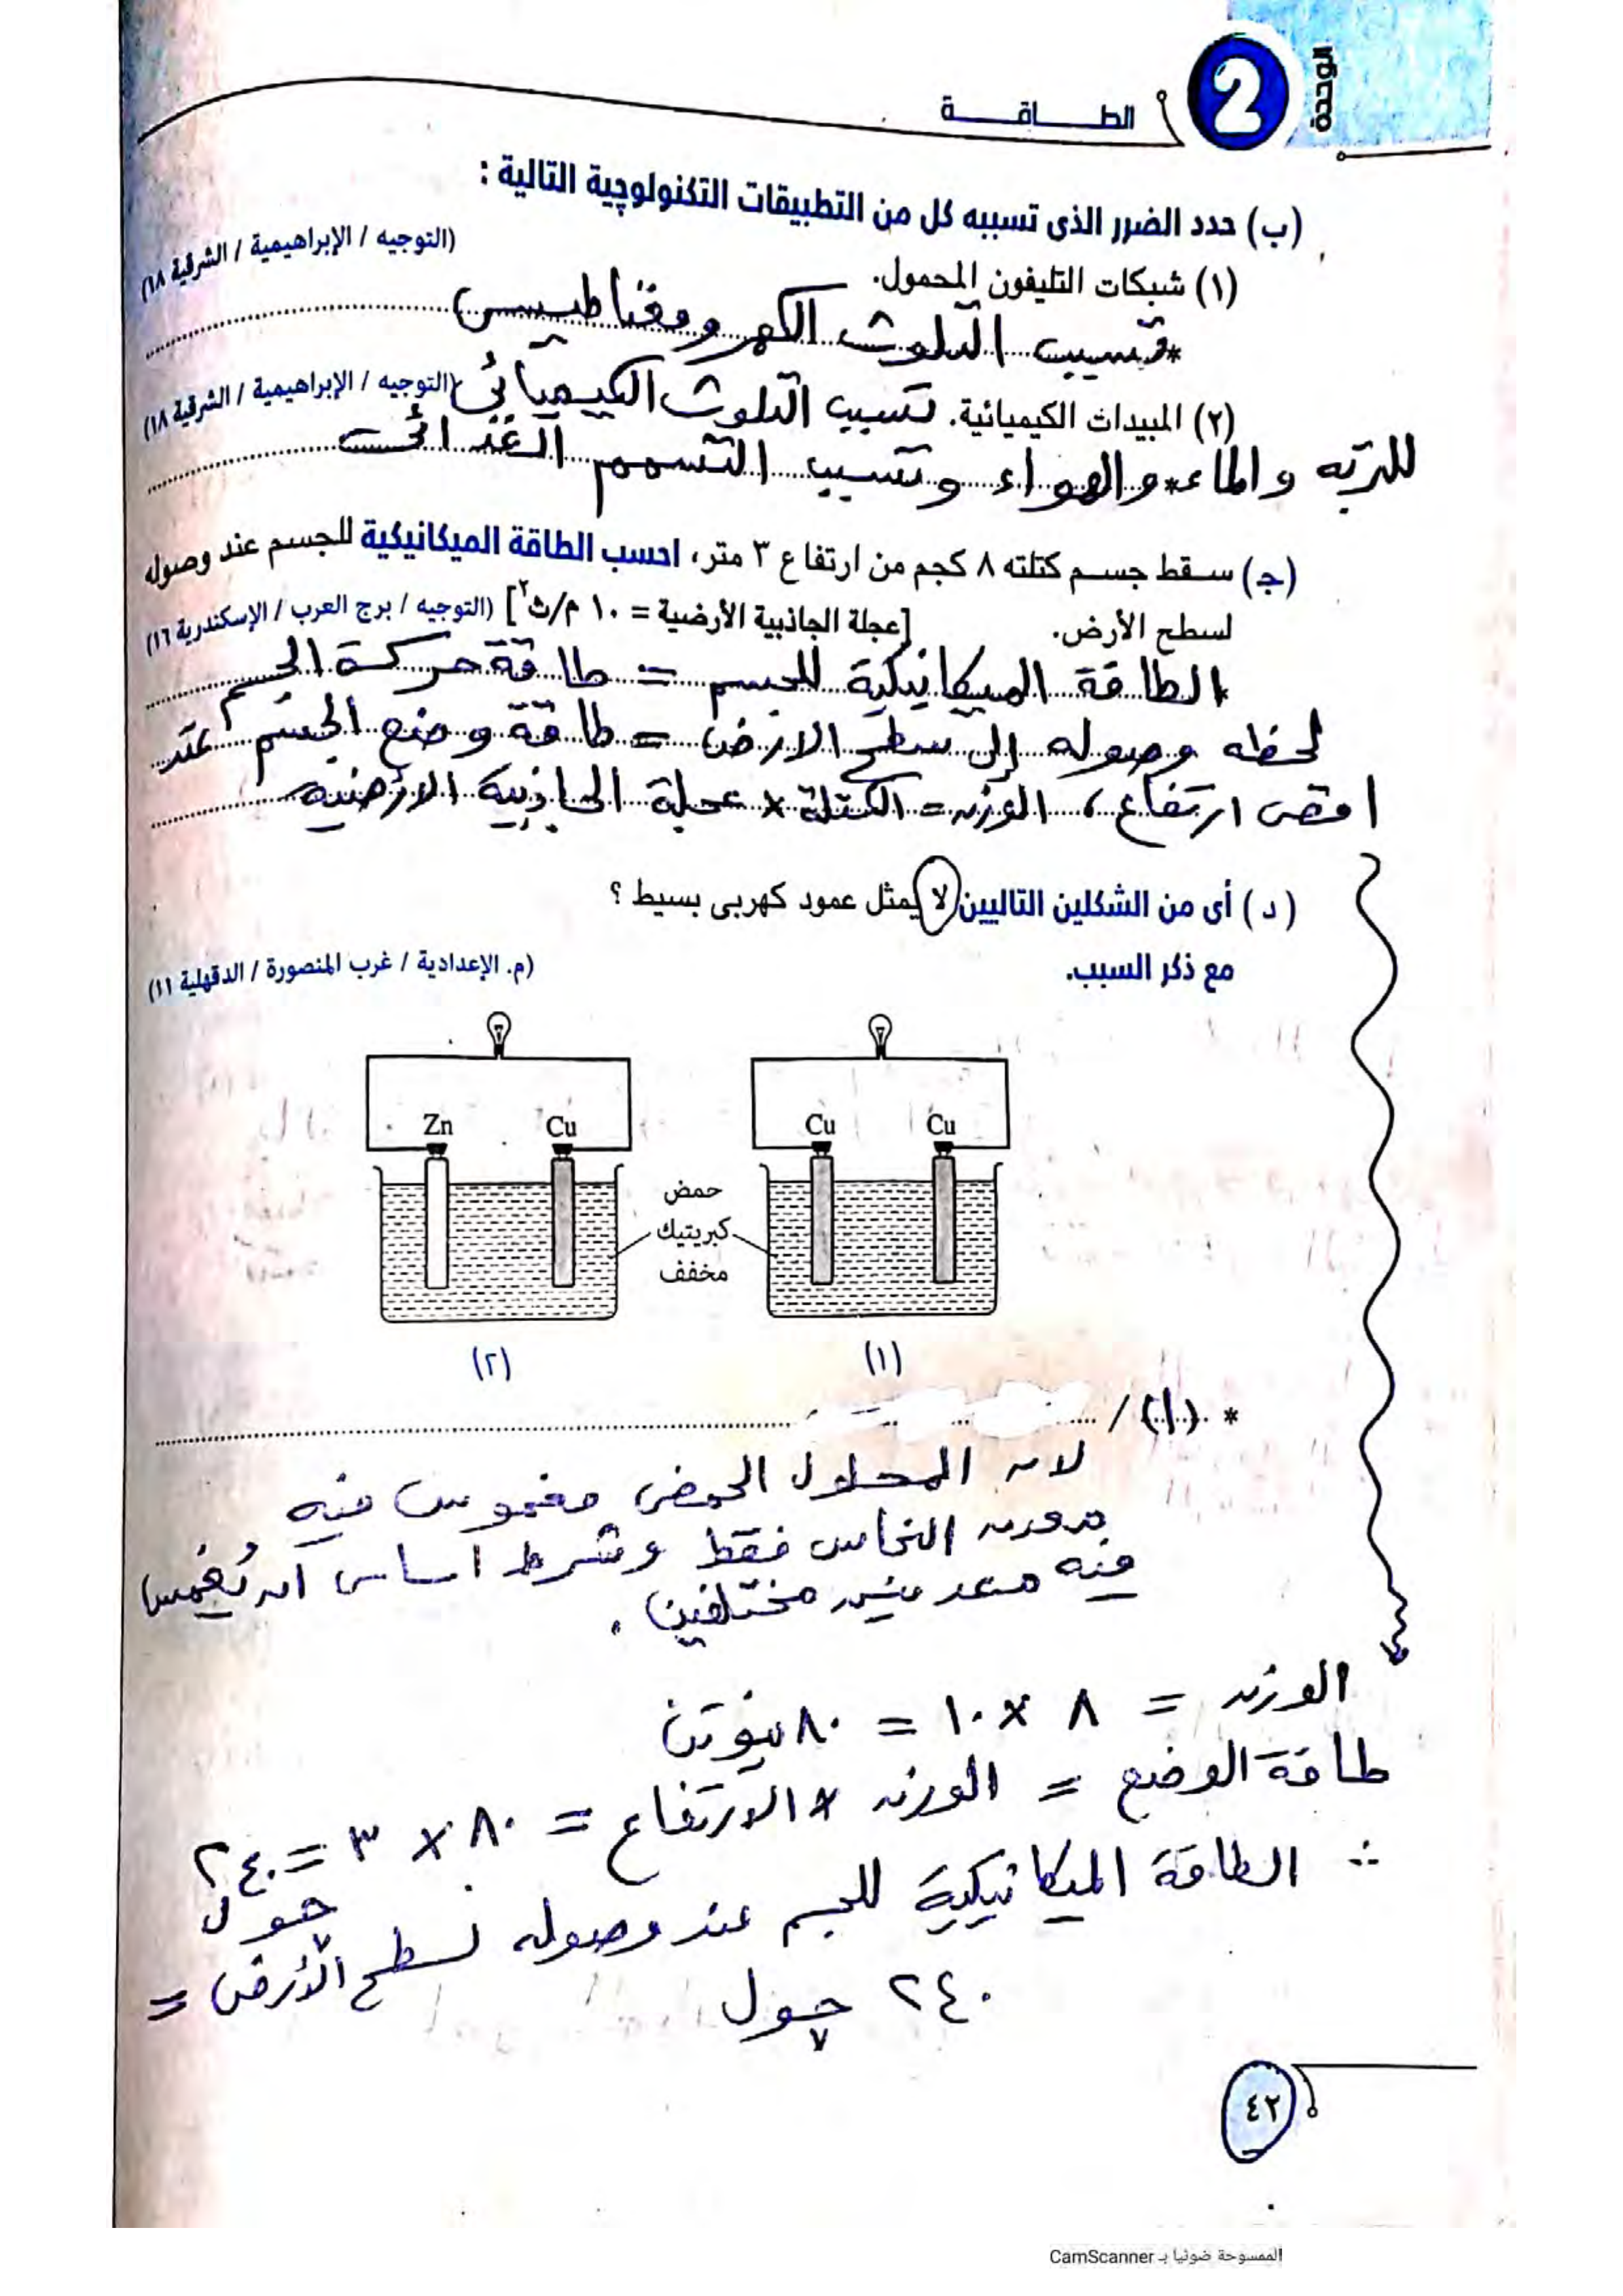 الوحدة
2
الطـــاقـــة
(ب) حدد الضرر الذى تسببه كل من التطبيقات التكنولوچية التالية :
(١) شبكات التليفون المحمول.
(التوجيه / الإبراهيمية / الشرقية ١٨)
* تسبب التلوث الكهرومغناطيسى
(٢) المبيدات الكيميائية. تسبب التلوث الكيميائى (التوجيه / الإبراهيمية / الشرقية ١٨)
للتربه والماء * والهواء وتسبب التسمم الغذائى
(جـ) سقط جسم كتلته ٨ كجم من ارتفاع ٣ متر، احسب الطاقة الميكانيكية للجسم عند وصوله
لسطح الأرض. [عجلة الجاذبية الأرضية = ١٠ م/ث٢] (التوجيه / برج العرب / الإسكندرية ١٦)
* الطاقة الميكانيكية للجسم = طاقة حركة الجسم
لحظه وصوله إلى سطح الارض = طاقة وضع الجسم عند
اقصى ارتفاع ، الوزن = الكتلة × عجلة الجاذبية الأرضيه
(د) أى من الشكلين التاليين لا يمثل عمود كهربى بسيط ؟
مع ذكر السبب.
(م. الإعدادية / غرب المنصورة / الدقهلية ١١)
Cu Cu
Zn Cu
حمض
كبريتيك
مخفف
(١)
(٢)
* (١) /
لان المحلول الحمضى مغموس فيه
النحاس فقط وشرط اساسى ان يُغمس
فيه معدنين مختلفين .
الوزن = ٨ × ١٠ = ٨٠ نيوتن
طاقة الوضع = الوزن × الارتفاع = ٨٠ × ٣ = ٢٤٠
جول
∴ الطاقة الميكانيكية للجسم عند وصوله لسطح الأرض =
٢٤٠ جول
٤٢
الممسوحة ضوئيا بـ CamScanner